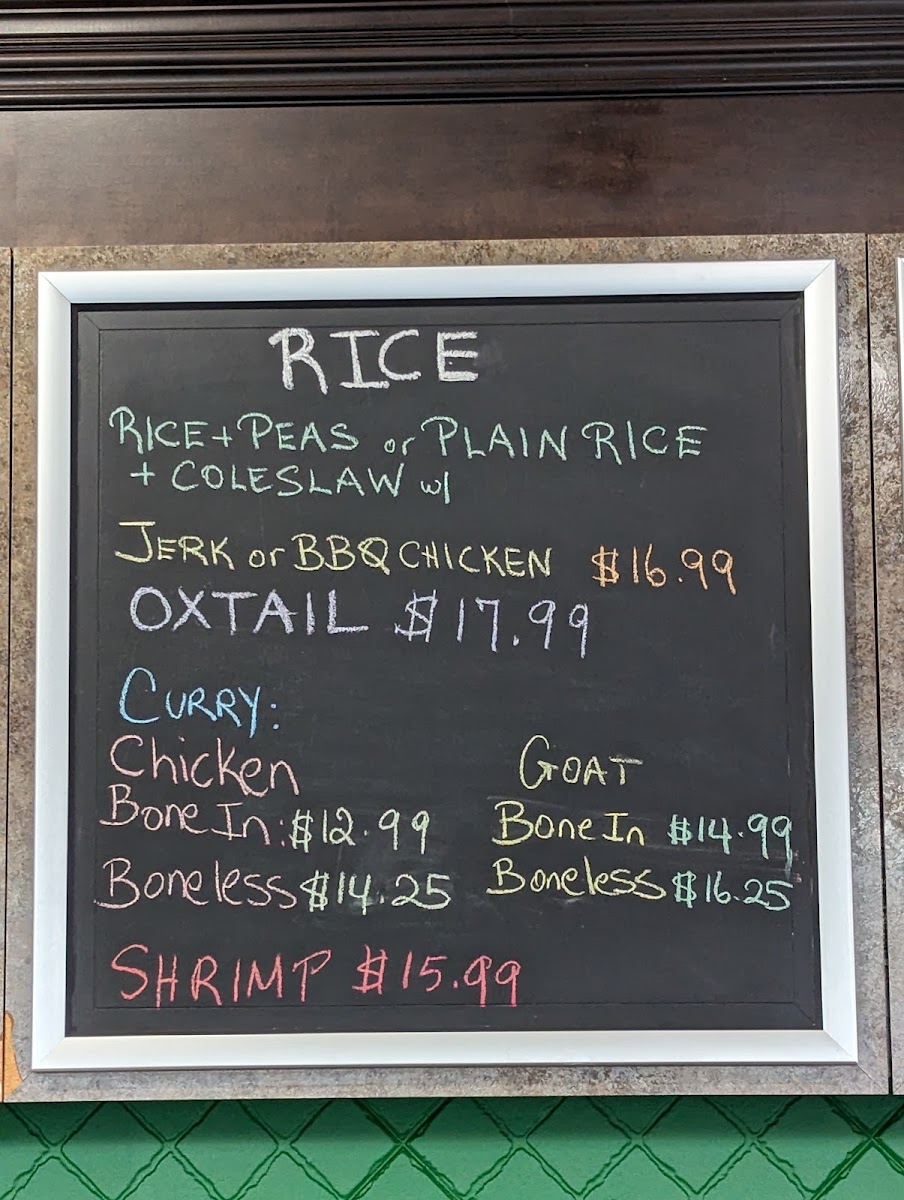 RICE
RICE + PEAS or PLAIN RICE
+ COLESLAW w/
JERK or BBQ CHICKEN $16.99
OXTAIL $17.99
CURRY:
Chicken
Bone In: $12.99
Boneless $14.25
GOAT
Bone In $14.99
Boneless $16.25
SHRIMP $15.99